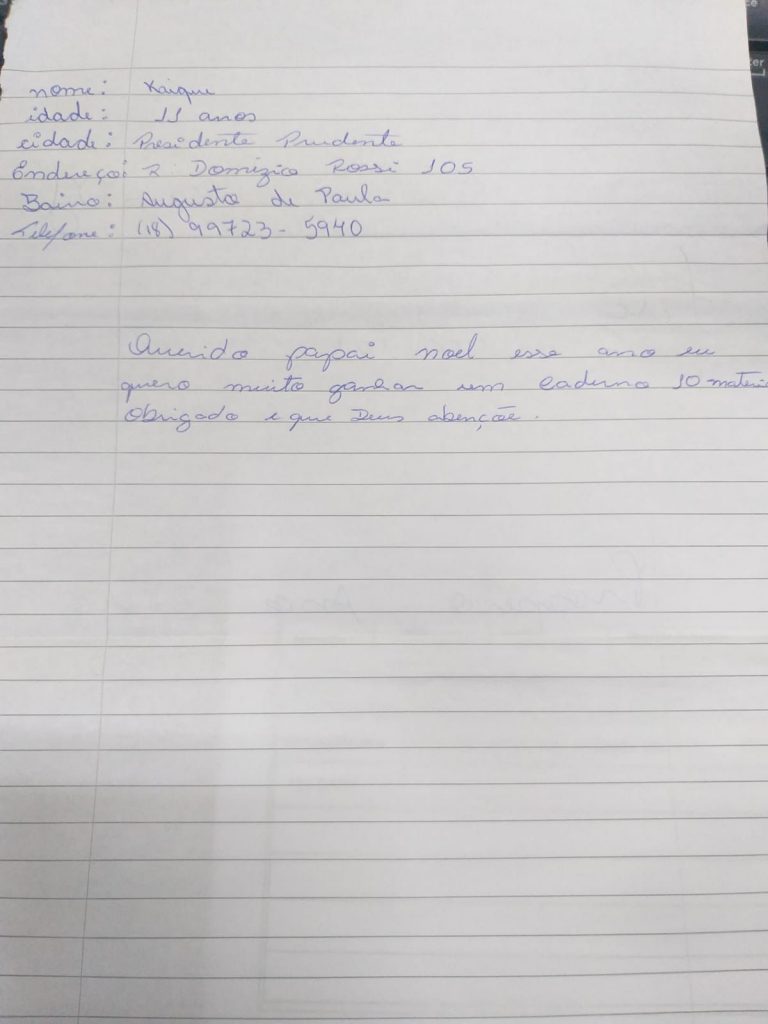 nome: Kaique
idade: 11 anos
cidade: Presidente Prudente
Endereço: R Domizio Rossi 105
Bairro: Augusto de Paula
Telefone: (18) 99723-5940
Querido papai noel esse ano eu
quero muito ganhar um caderno 10 materia
Obrigado e que Deus abençõe.